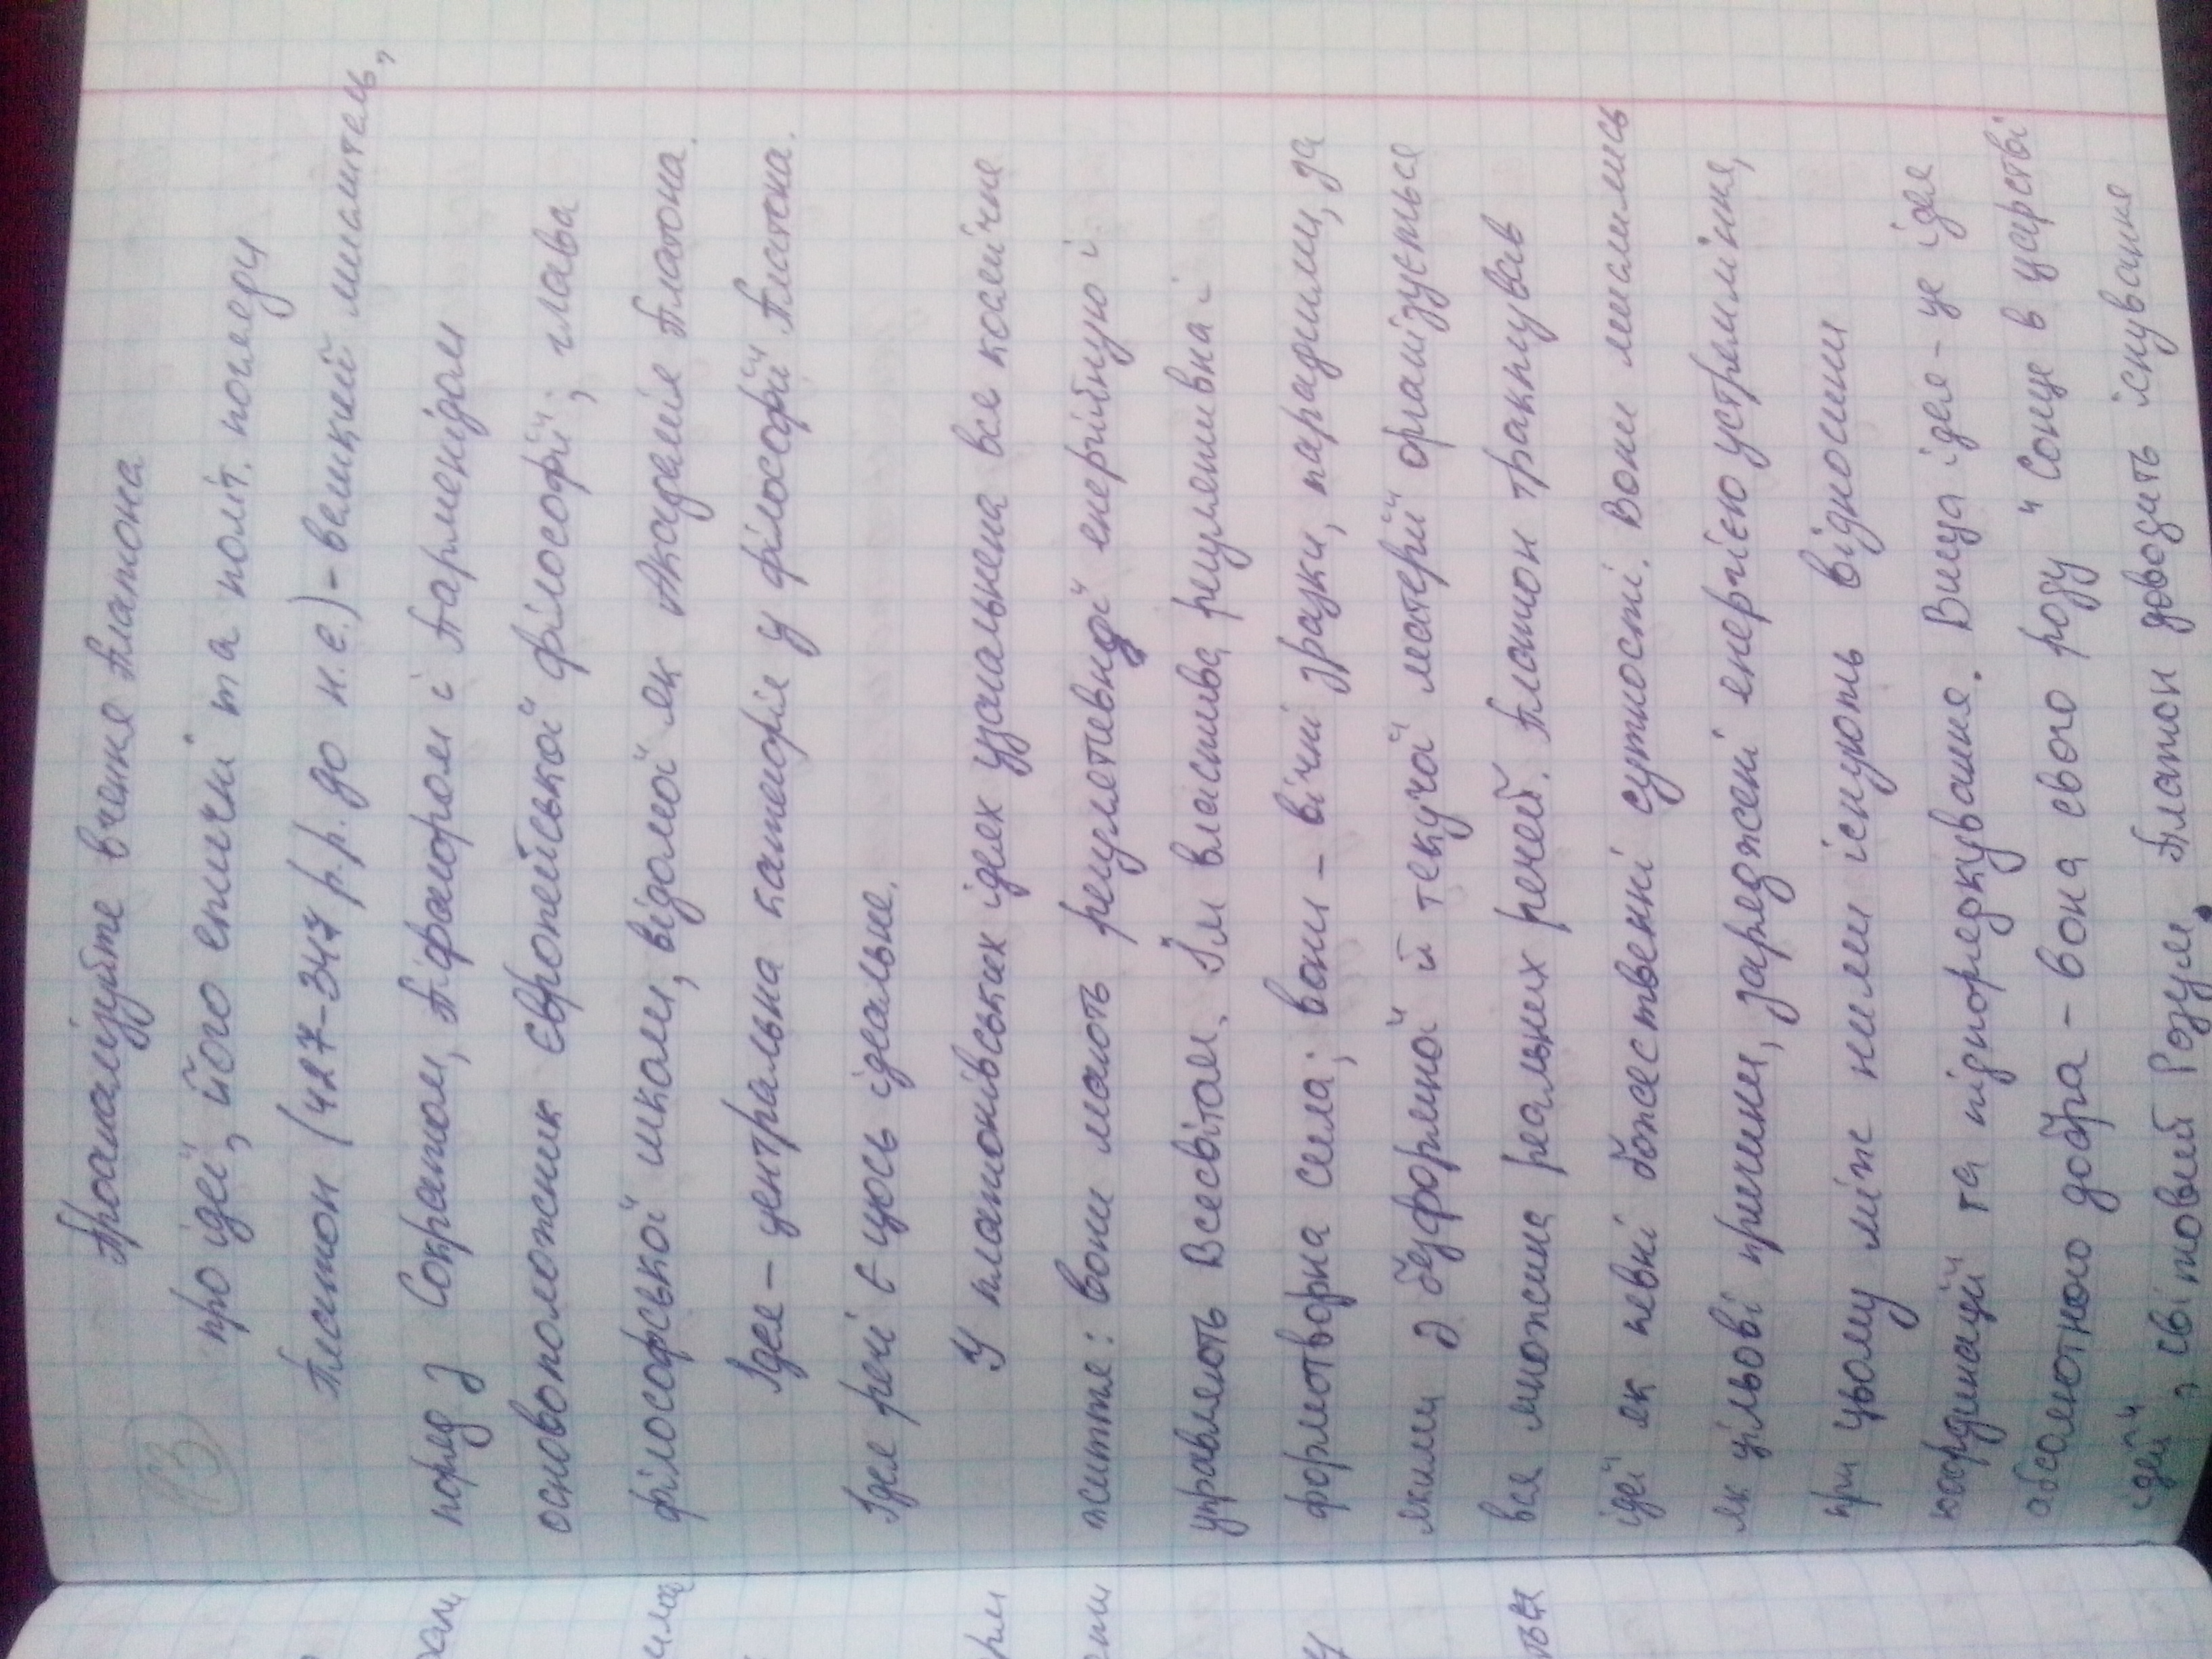 Проаналізуйте вчення Платона
13
про ідеї, його етичні та політ. погляди
Платон (427-347 р.р. до н.є.) - великий мислитель,
поряд з Сократом, Піфагором і Парменідом
основоположник європейської філософії; глава
філософської школи, відомої як Академія Платона.
Ідея - центральна категорія у філософії Платона.
Ідея речі є щось ідеальне.
У платонівських ідеях узагальнена все космічне
життя: вони мають регулятивної енергійную і
управляють Всесвітом. Їм властива регулятивна і
формотворна сила; вони - вічні зразки, парадигми, за
якими з безформної й текучої матерії організується
вся множина реальних речей. Платон трактував
ідеї як певні божественні сутності. Вони мислились
як цільові причини, заряджені енергією устремління,
при цьому між ними існують відносини
координації та підпорядкування. Вища ідея - це ідея
абсолютного добра - вона свого роду "Сонце в царстві
ідей", світовий Розум. Платон доводить існування